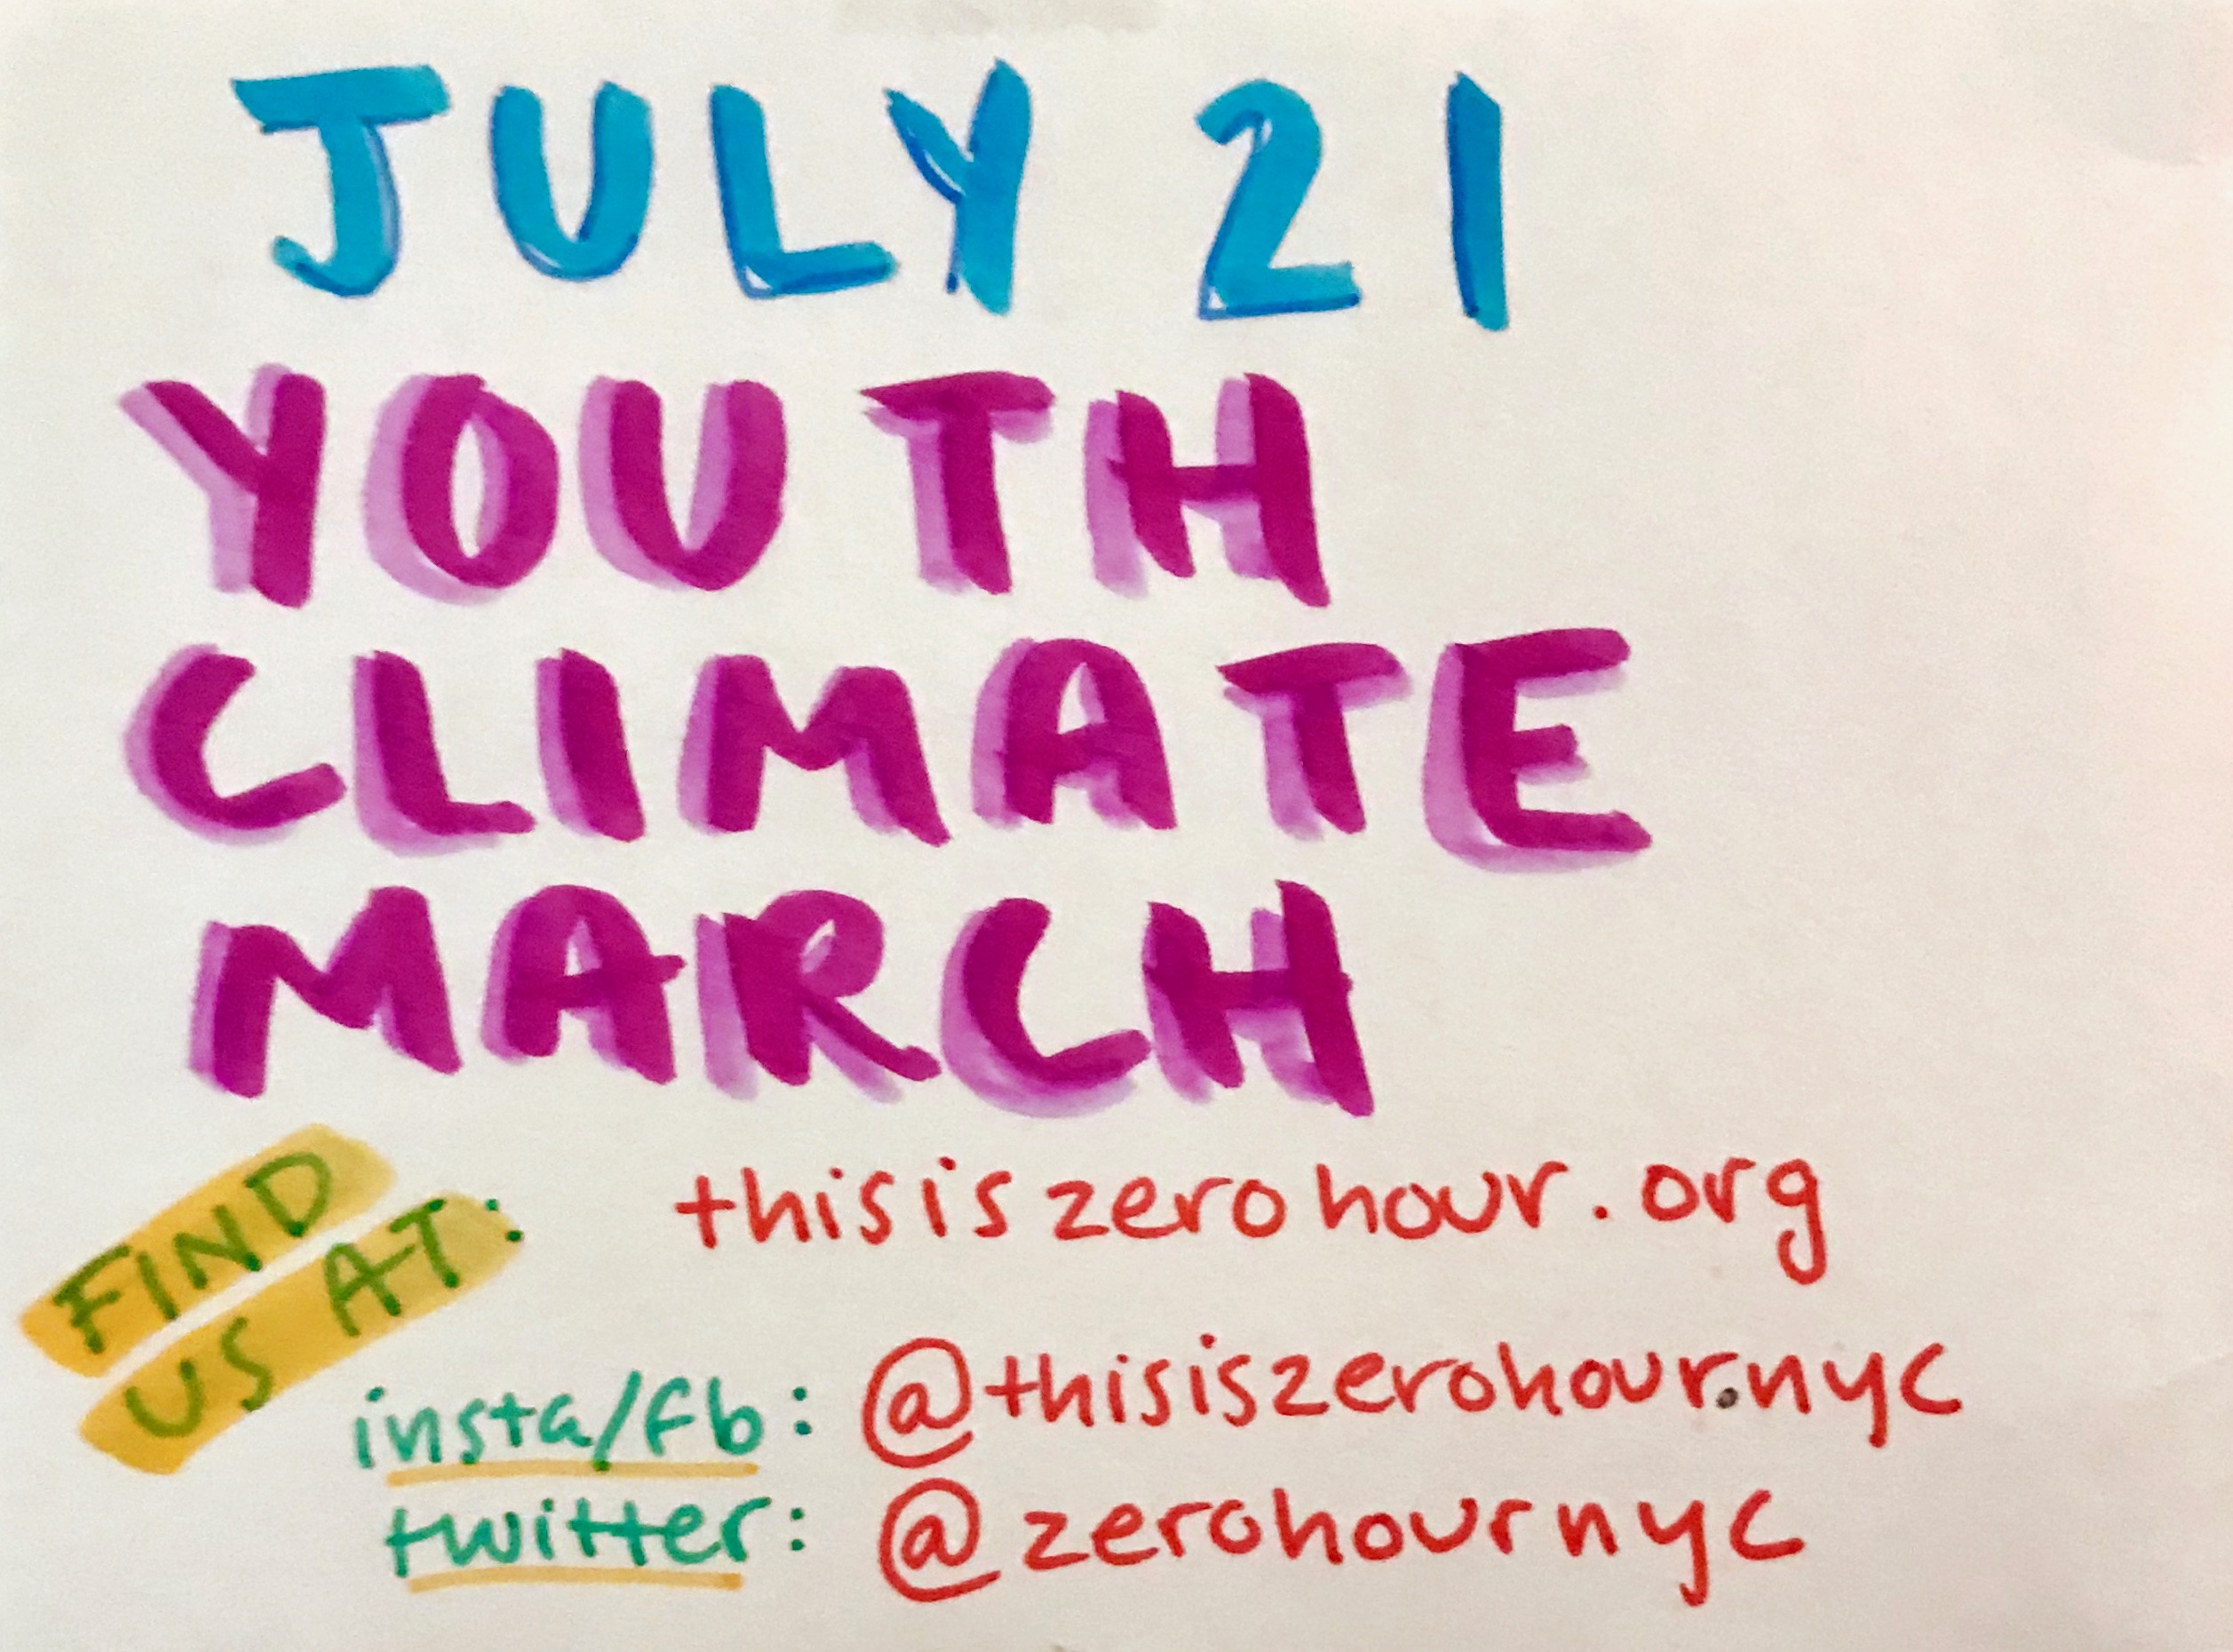 JULY 21
YOUTH
CLIMATE
MARCH
FIND
US AT:
thisiszerohour.org
insta/fb: @thisiszerohour.nyc
twitter: @zerohournyc